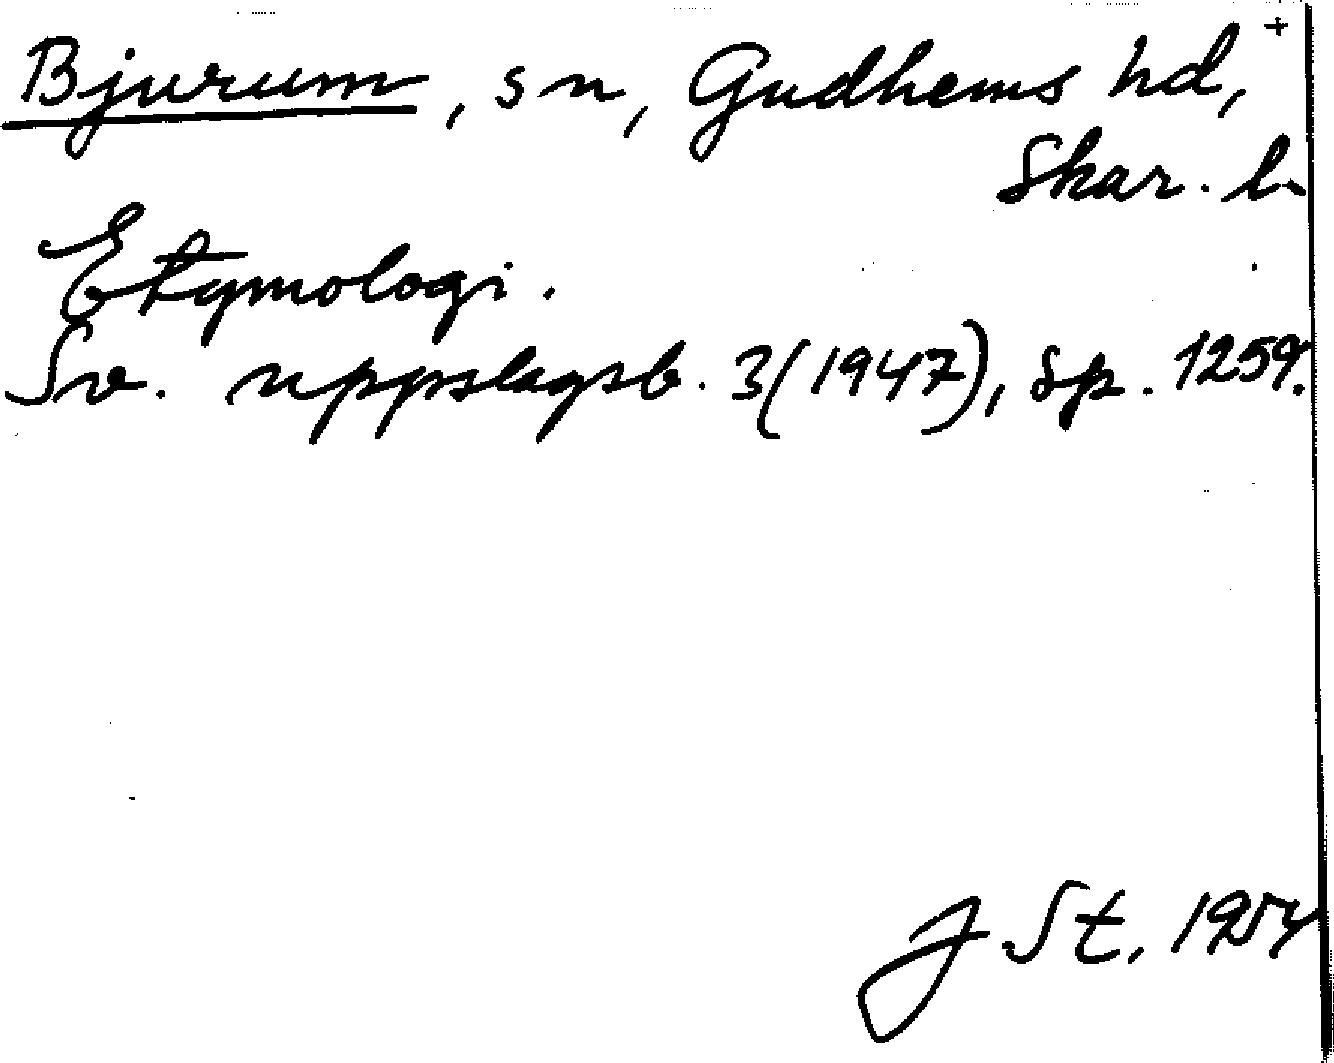 Bjurum, sn, Gudhems hd, +
Skar. l.
Etymologi.
Sv. uppslagsb. 3(1947), sp. 1259.
J St, 1954